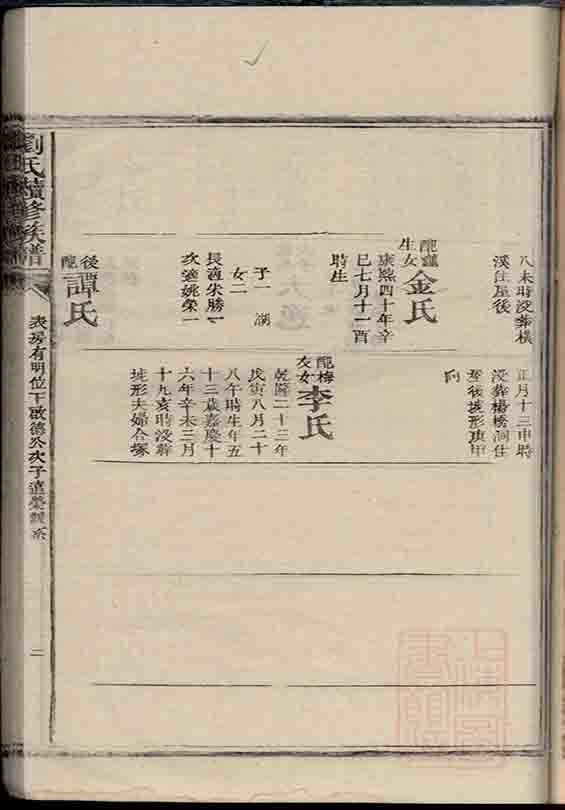 劉氏續修族譜
表房有明位下啟德公次子遠榮
二
八未時沒葬橫
溪住屋後
配
生女
金氏
康熙四十年辛
巳七月十一酉
時生
子一
女二
長適朱勝一
次適姚榮一
後配
譚氏
正月十三申時
沒葬楊橋洞住
屋後坡形庚甲
向
配梅
友女
李氏
乾隆二十三年
戊寅八月二十
八午時生年五
十三歲嘉慶十
六年辛未三月
十九亥時沒葬
坡形夫婦合塚